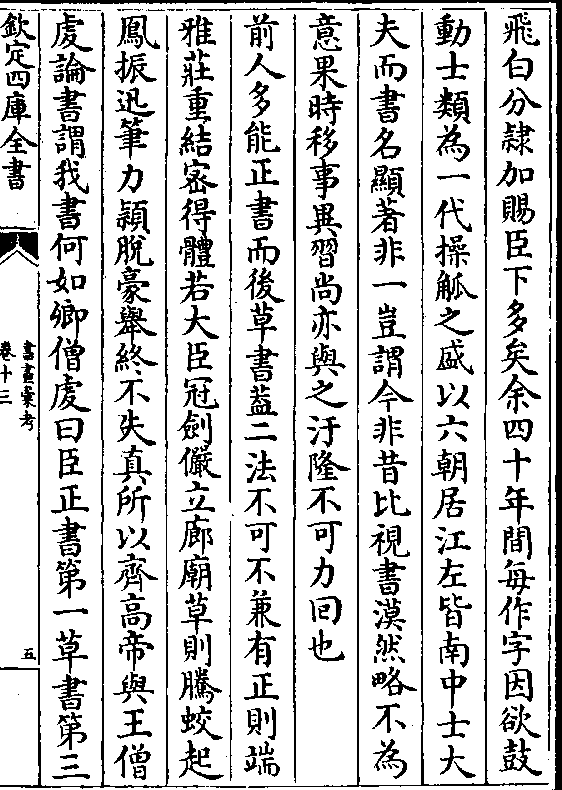 飛白分隸加賜臣下多矣余四十年間每作字因欲鼓
動士類為一代操觚之盛以六朝居江左皆南中士大
夫而書名顯著非一豈謂今非昔比視書漠然略不為
意果時移事異習尚亦與之汙隆不可力回也
前人多能正書而後草書葢二法不可不兼有正則端
雅莊重結密得體若大臣冠劍儼立廊廟草則騰蛟起
鳳振迅筆力穎脫豪舉終不失真所以齊高帝與王僧
虔論書謂我書何如卿僧虔曰臣正書第一草書第三
欽定四庫全書
書畫彙考
卷十三
五